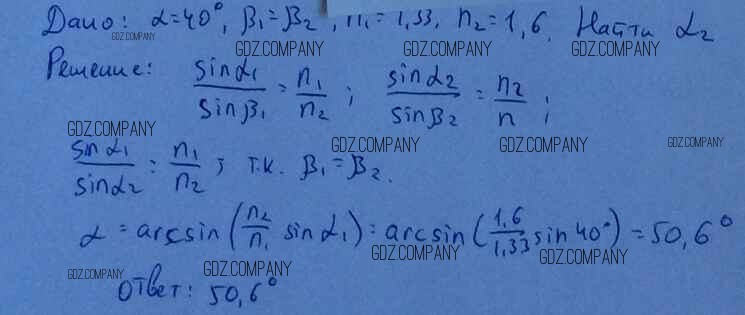 Дано: α=40°, β₁=β₂, n₁=1,33, n₂=1,6. Найти α₂
GDZ.COMPANY GDZ.COMPANY GDZ.COMPANY GDZ.COMPANY
Решение: sinα₁/sinβ₁ = n₁/n₂; sinα₂/sinβ₂ = n₂/n;
GDZ.COMPANY GDZ.COMPANY GDZ.COMPANY GDZ.COMPANY
sinα₁/sinα₂ = n₁/n₂; т.к. β₁=β₂.
α = arcsin(n₂/n₁ sinα₁) = arcsin(1,6/1,33 sin40°) = 50,6°
GDZ.COMPANY GDZ.COMPANY GDZ.COMPANY GDZ.COMPANY
Ответ: 50,6°